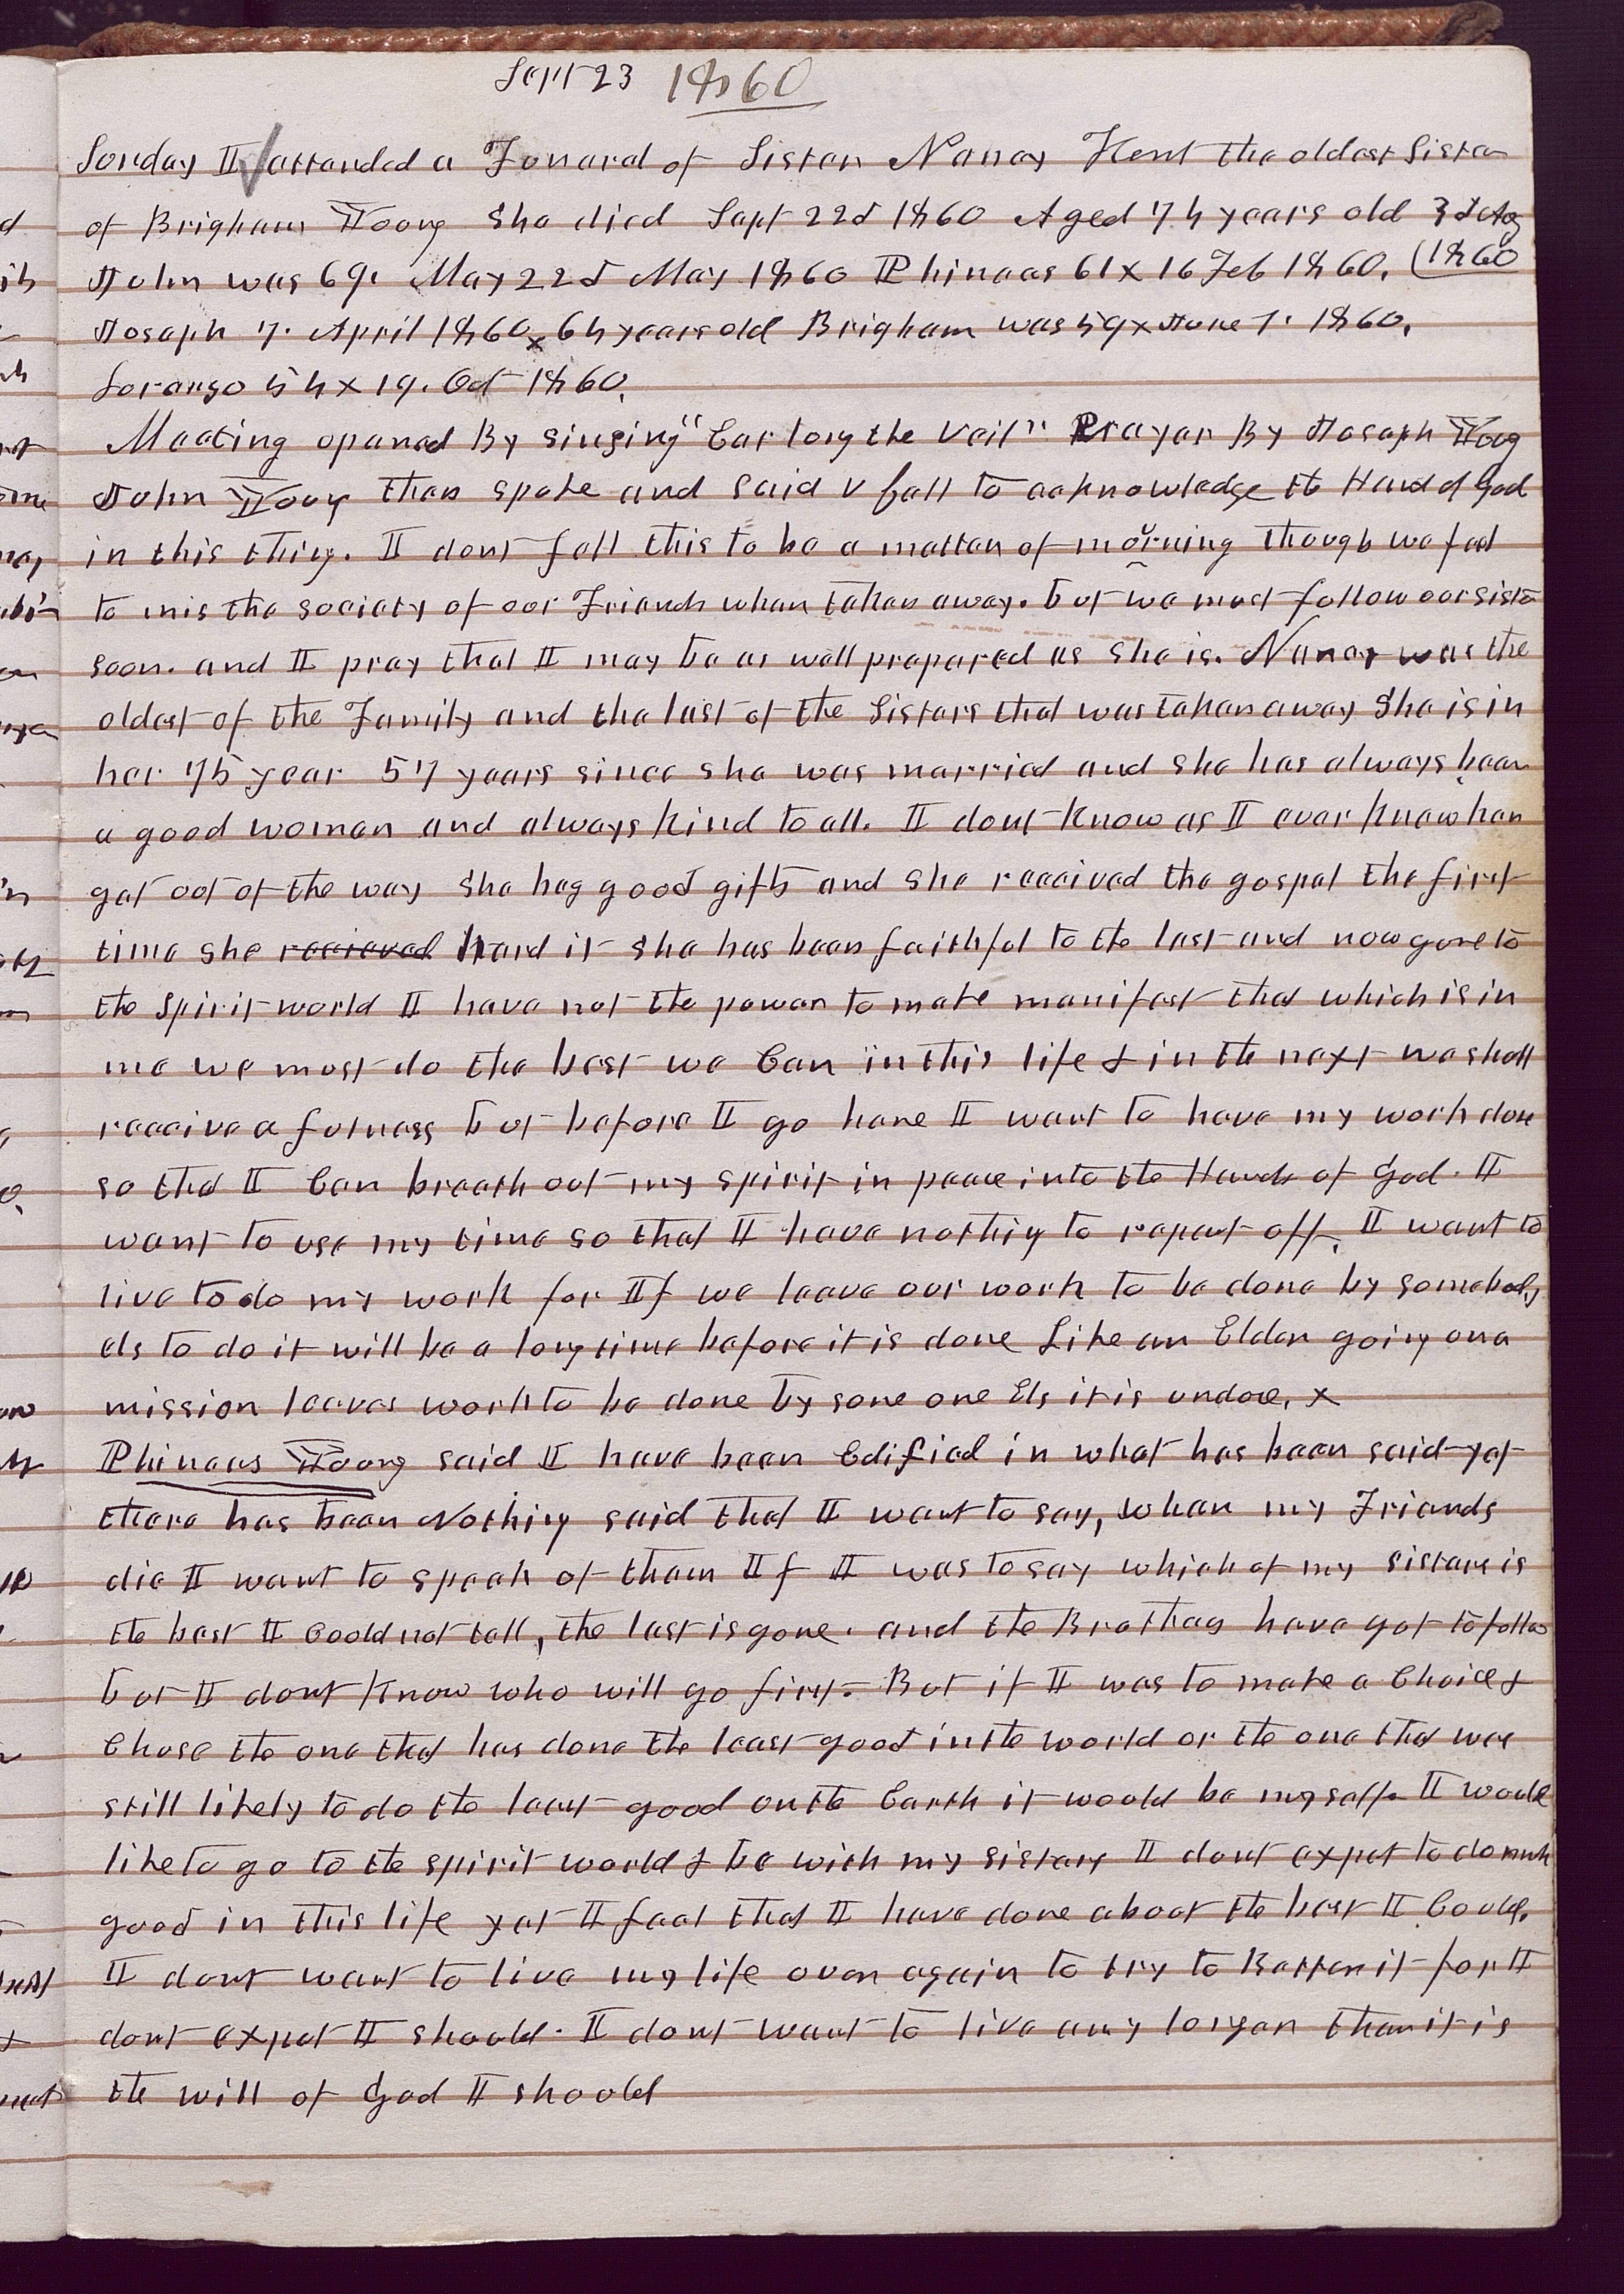 Sept 23 1860
Sunday I attended a Funeral of Sister Nancy Kent the oldest Sister
of Brigham Young She died Sept 22d 1860 Aged 74 years old 3d Aug
John was 69. May 22d May 1860 Phineas 61 x 16 Feb 1860. (1860
Joseph 7. April 1860 x 64 years old Brigham was 59 x June 1. 1860.
Loranzo 54 x 19. Oct 1860.
Meeting opened By singing "Ear long the veil" Prayer By Joseph Young
John Young then spoke and said I feel to acknowledge the Hand of God
in this thing. I dont fell this to be a matter of morning though we feel
to mis the society of our Friends when taken away. but we must follow our sister
soon. and I pray that I may be as well prepared as she is. Nancy was the
oldest of the Family and the last of the Sisters that was taken away She is in
her 75 year 57 years since she was married and she has always been
a good woman and always kind to all. I dont know as I ever knew her
get out of the way She had good gifts and she received the gospel the first
time she recieved heard it she has been faithful to the last and now gone to
the spirit world I have not the power to make manifest that which is in
me we must do the best we Can in this life & in the next we shall
receive a fulness but before I go hence I want to have my work done
so that I Can breath out my spirit in peace into the Hands of God. I
want to use my time so that I have nothing to repent off. I want to
live to do my work for If we leave our work to be done by somebody
els to do it will be a long time before it is done Like an Elder going on a
mission leaves work to be done by some one Els it is undone. x
Phineas Young said I have been Edified in what has been said yet
there has been Nothing said that I want to say, when my Friends
die I want to speak of them If I was to say which of my sisters is
the best I Could not tell, the last is gone. and the Brothers have got to follow
but I dont know who will go first. But if I was to make a Choice &
Chose the one that has done the least good in the world or the one that was
still likely to do the least good on the Earth it would be myself. I would
like to go to the spirit world & be with my sisters I dont expet to do much
good in this life yet I feel that I have done about the best I Could.
I dont want to live my life over again to try to Better it for I
dont expet I should. I dont want to live any longer than it is
the will of God I should